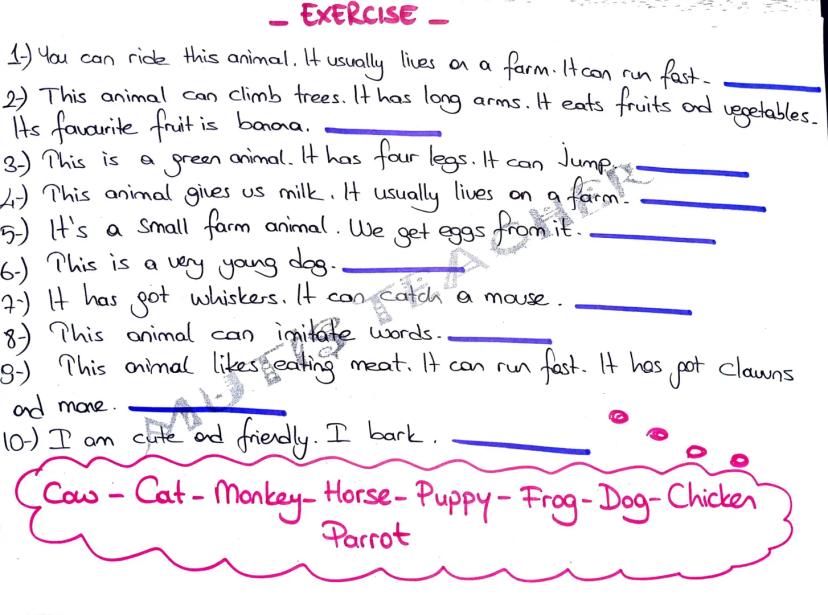 _ EXERCISE _
1-) You can ride this animal. It usually lives on a farm. It can run fast. ______
2-) This animal can climb trees. It has long arms. It eats fruits and vegetables.
Its favourite fruit is banana. ______
3-) This is a green animal. It has four legs. It can jump. ______
4-) This animal gives us milk. It usually lives on a farm. ______
5-) It's a small farm animal. We get eggs from it. ______
6-) This is a very young dog. ______
7-) It has got whiskers. It can catch a mouse. ______
8-) This animal can imitate words. ______
9-) This animal likes eating meat. It can run fast. It has got clawns
and mane. ______
10-) I am cute and friendly. I bark. ______
Cow - Cat - Monkey - Horse - Puppy - Frog - Dog - Chicken
Parrot
MUTIS TEACHER